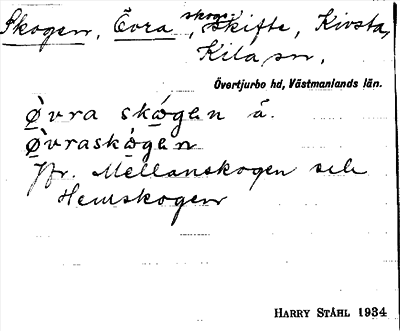 Skogen, Övra skogs-, Skifte, Kivsta,
Kila sn,
Övertjurbo hd, Västmanlands län.
Øvra skǿgen å.
Øvraskǿgen
Jfr. Mellanskogen och
Hemskogen
HARRY STÅHL 1934